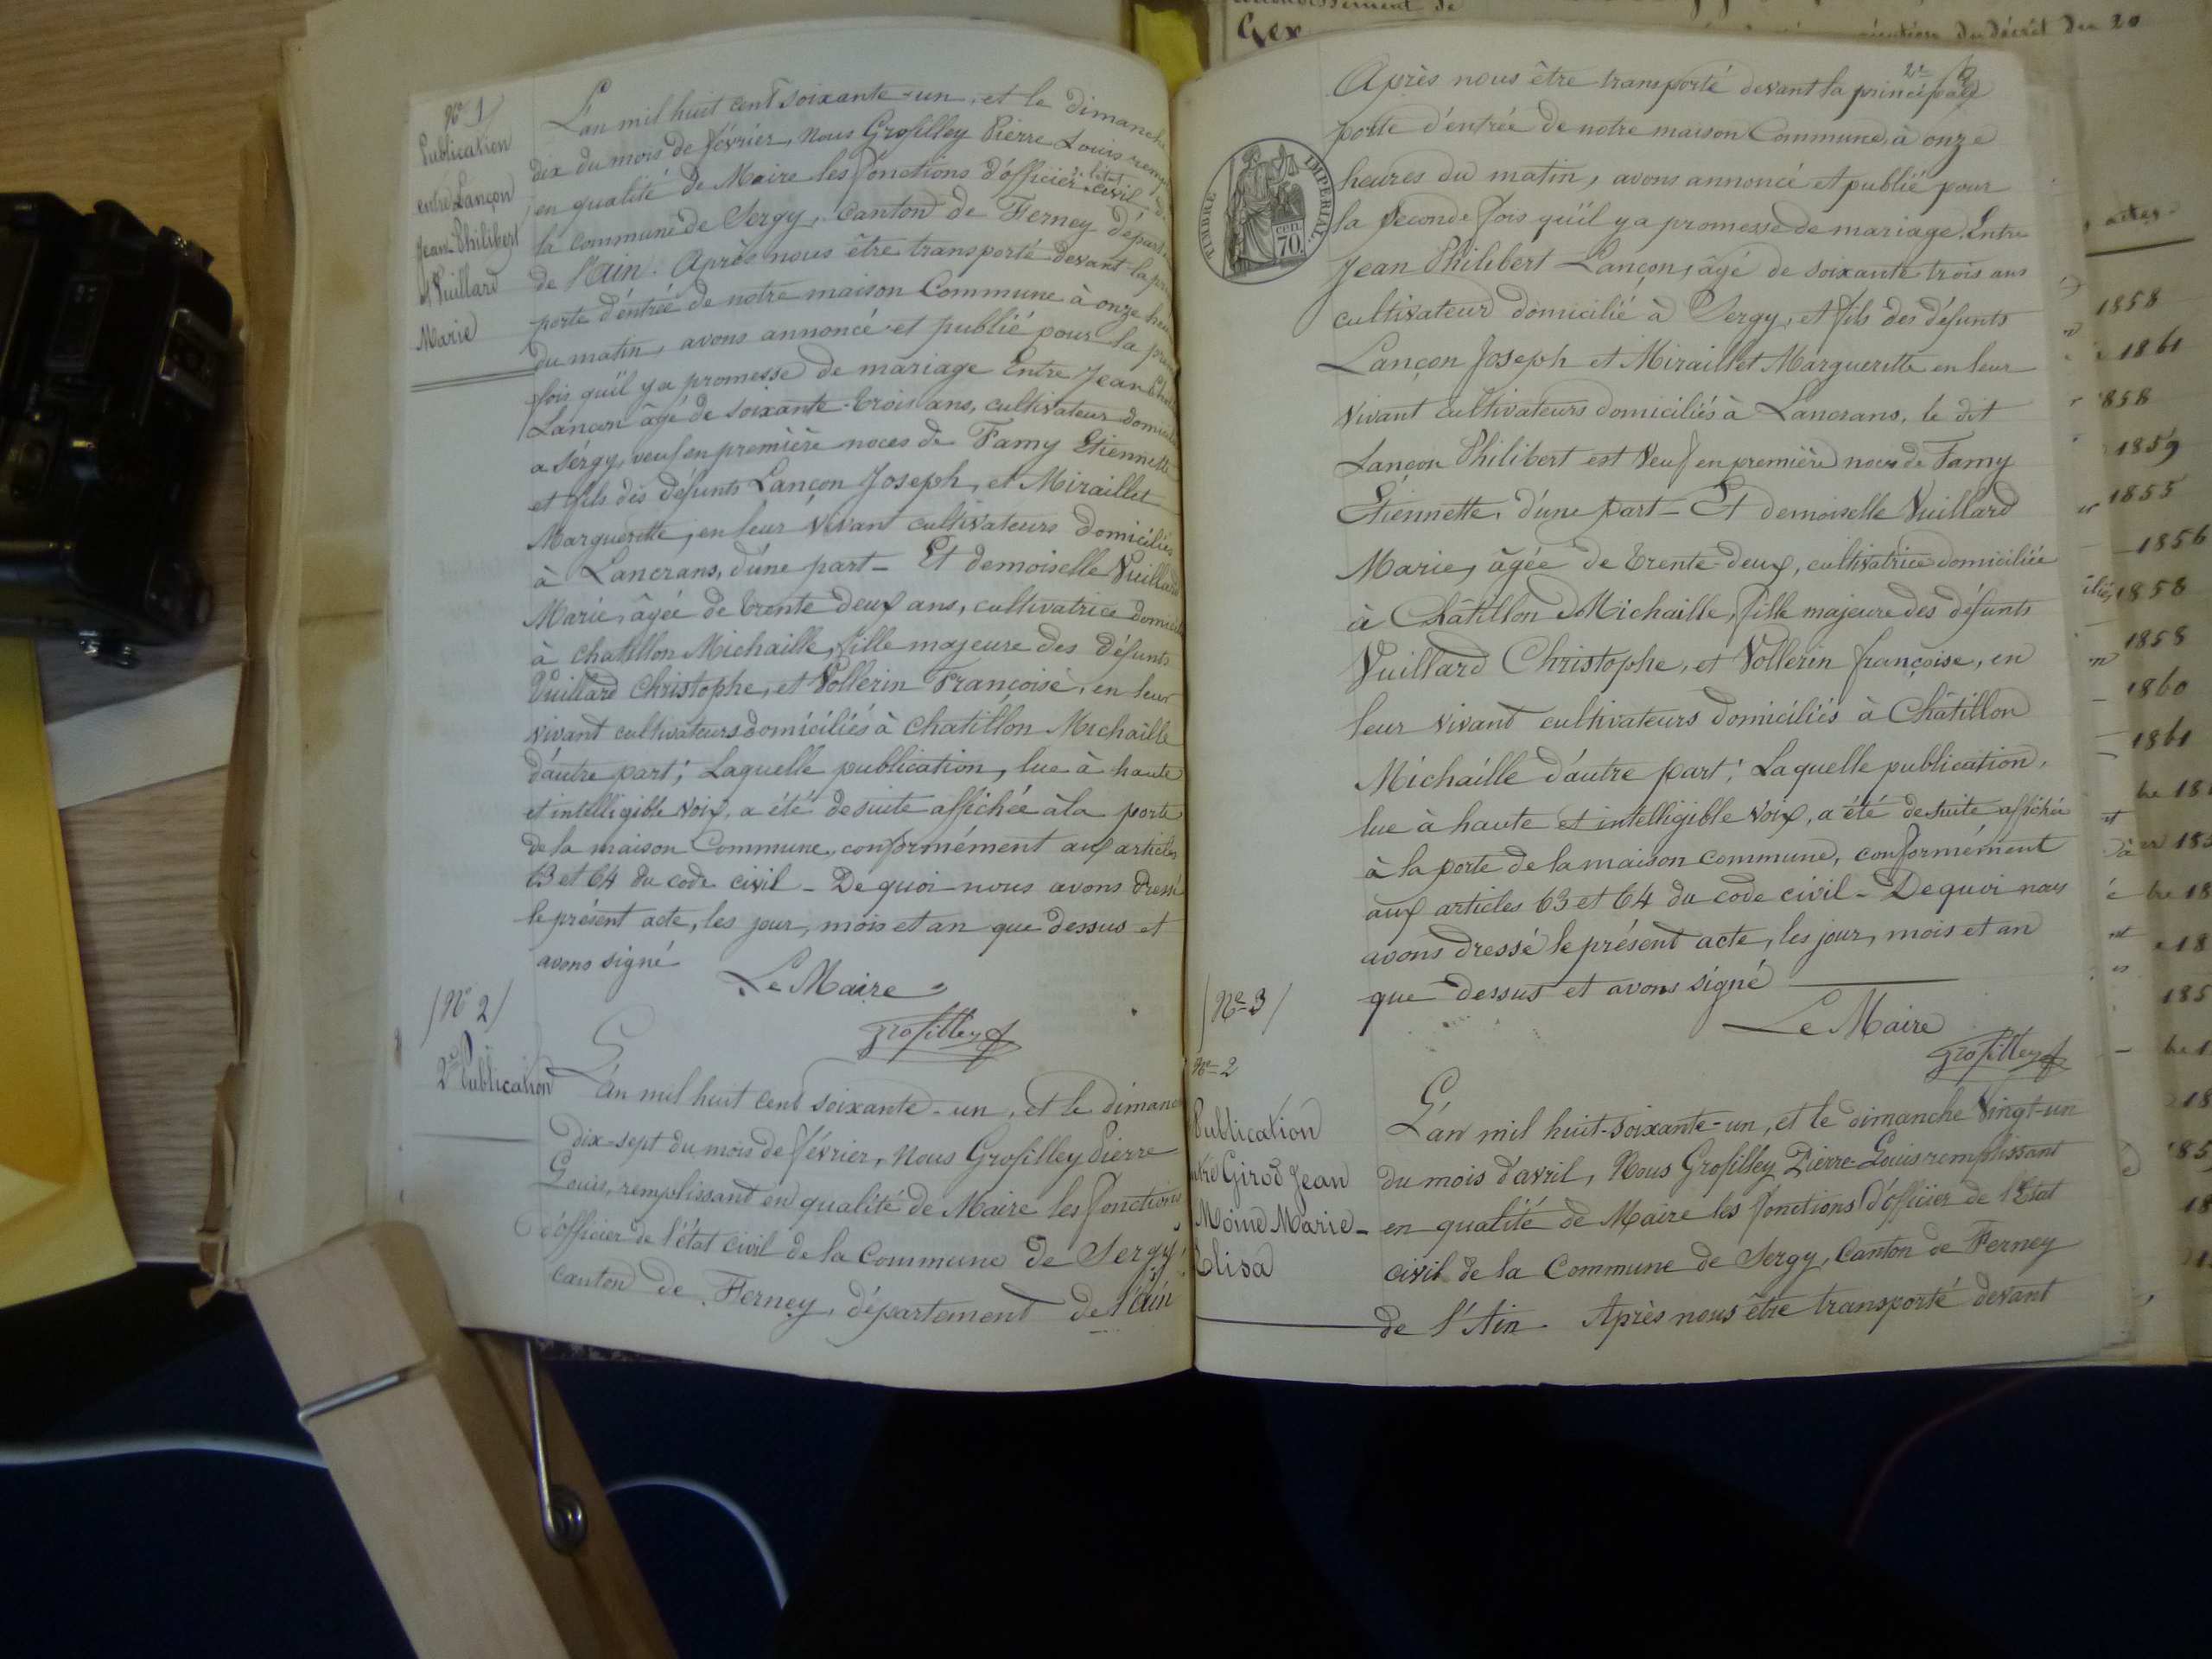 N° 1
Publication
entre Lançon
Jean-Philibert
et Vuillard
Marie
L'an mil huit cent soixante-un, et le dimanche
dix du mois de février, Nous Grosfilley Pierre Louis
en qualité de Maire les fonctions d'officier de l'état civil de
la Commune de Sergy, Canton de Ferney
de l'Ain. Après nous être transporté devant la
porte d'entrée de notre maison Commune à onze
du matin, avons annoncé et publié pour la
fois qu'il y a promesse de mariage Entre Jean
Lançon âgé de soixante-trois ans, cultivateur
a Sergy, veuf en première noces de Famy Etiennette
et fils des défunts Lançon Joseph, et Miraillet
Marguerette, en leur vivant cultivateurs domiciliés
à Lancrans, d'une part - Et demoiselle Vuillard
Marie, âgée de trente deux ans, cultivatrice
à chatillon Michaille, fille majeure des défunts
Vuillard Christophe, et Vollerin Françoise, en leur
vivant cultivateurs domiciliés à chatillon Michaille
d'autre part; Laquelle publication, lue à haute
et intelligible voix, a été de suite affichée à la porte
de la maison Commune, conformément aux articles
63 et 64 du code civil - De quoi nous avons dressé
le présent acte, les jour, mois et an que dessus et
avons signé
Le Maire
Grosfilley
/ N° 2 /
2e Publication
L'an mil huit cent soixante-un, et le
dix-sept du mois de février, Nous Grosfilley Pierre
Louis, remplissant en qualité de Maire les fonctions
d'officier de l'état civil de la Commune de Sergy,
canton de Ferney, département de l'Ain
Gex
du décret du 20
2e
Après nous être transporté devant la principale
porte d'entrée de notre maison Commune, à onze
heures du matin, avons annoncé et publié pour
la seconde fois qu'il y a promesse de mariage. Entre
Jean Philibert Lançon, âgé de soixante trois ans
cultivateur domicilié à Sergy, et fils des défunts
Lançon Joseph et Miraillet Marguerette en leur
vivant cultivateurs domiciliés à Lancrans, le dit
Lançon Philibert est veuf en première noces de Famy
Etiennette, d'une part - Et demoiselle Vuillard
Marie, âgée de trente-deux, cultivatrice domiciliée
à Châtillon Michaille, fille majeure des défunts
Vuillard Christophe, et Vollerin françoise, en
leur vivant cultivateurs domiciliés à Châtillon
Michaille d'autre part; Laquelle publication,
lue à haute et intelligible voix, a été de suite affichée
à la porte de la maison commune, conformément
aux articles 63 et 64 du code civil - De quoi nous
avons dressé le présent acte, les jour, mois et an
que dessus et avons signé
Le Maire
Grosfilley
TIMBRE IMPÉRIAL
70 CEN.
/ N° 3 /
N° 2
Publication
Girod Jean
Moine Marie-
Elisa
L'an mil huit-soixante-un, et le dimanche vingt-un
du mois d'avril, Nous Grosfilley Pierre-Louis remplissant
en qualité de Maire les fonctions d'officier de l'état
civil de la Commune de Sergy, Canton de Ferney
de l'Ain. Après nous être transporté devant
actes
1858
1861
1858
1859
1855
1856
1858
1858
1860
1861